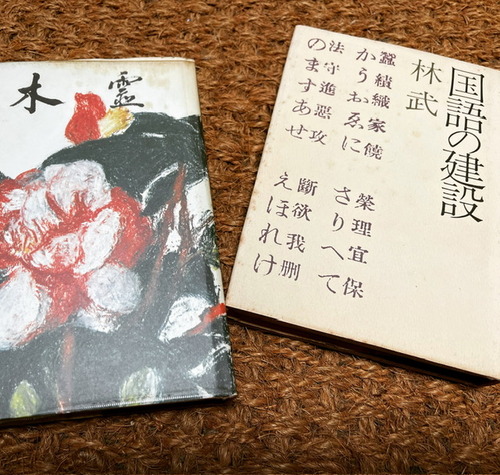 木靈
国語の建設
林武
蠶績織家饒 榮理宜
かうおゑに さりへて
法守進惡攻 欲我刪
のますあせ えほれけ